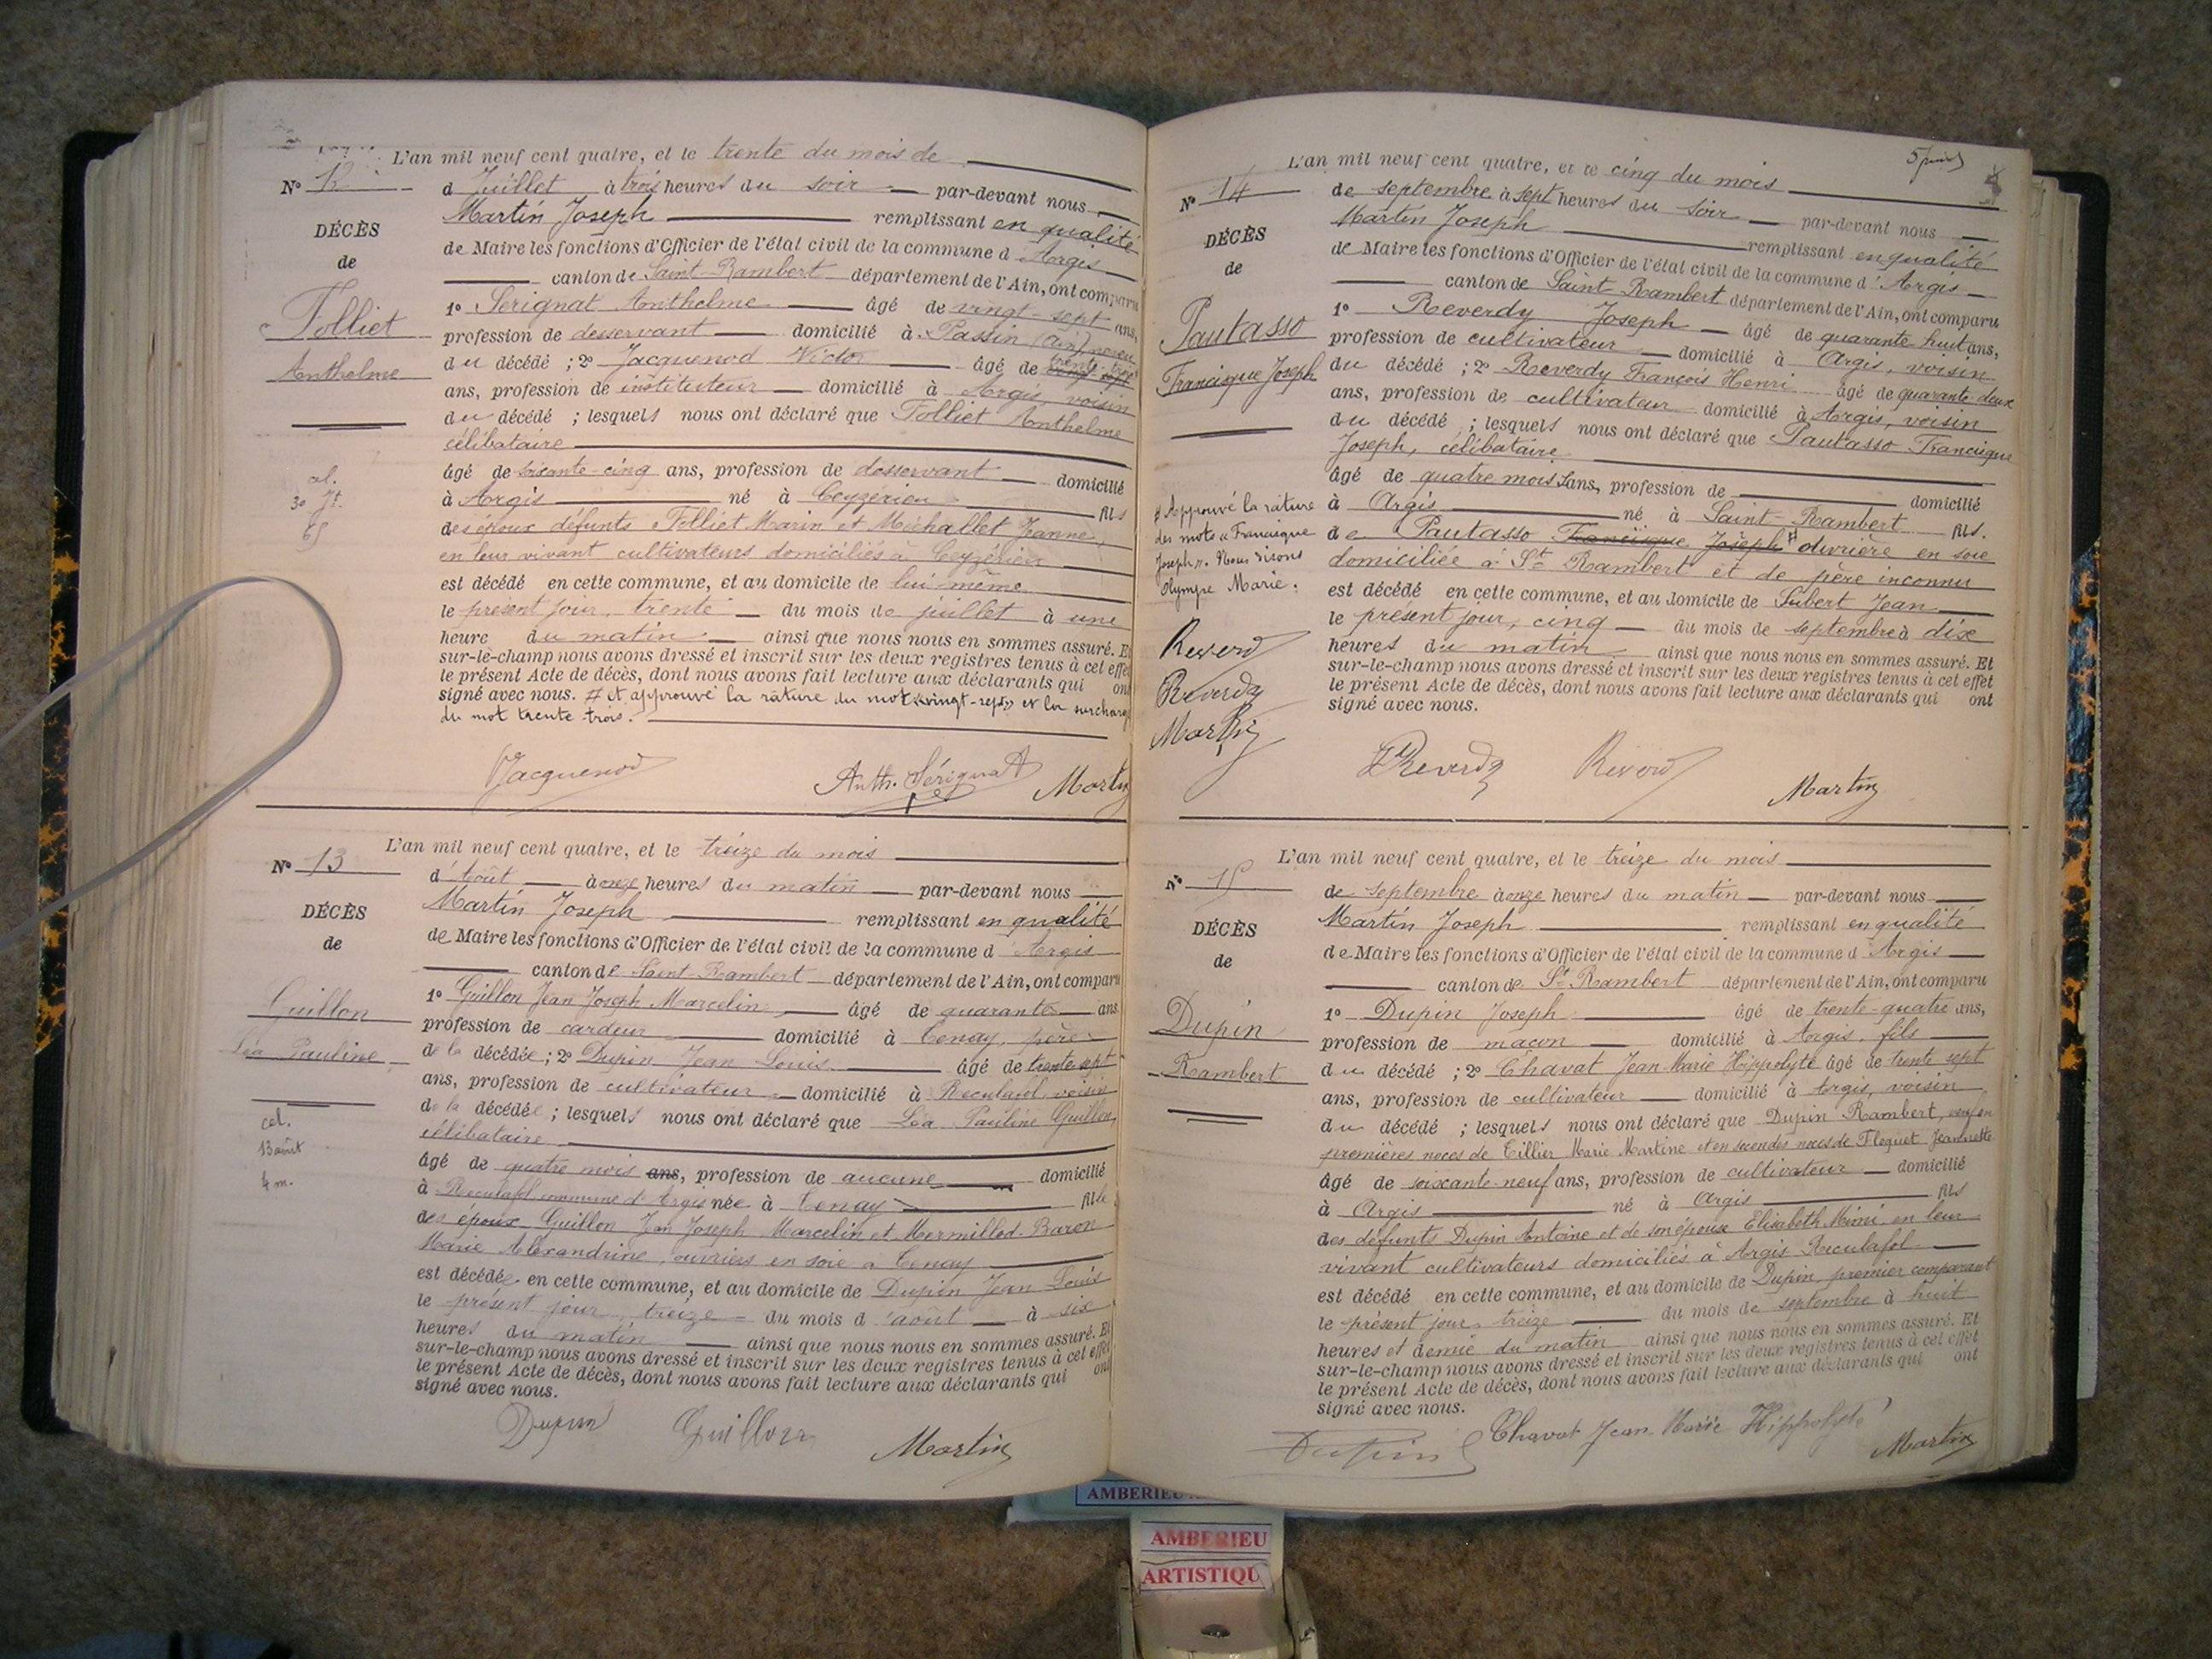 L'an mil neuf cent quatre, et le trente du mois de
N° 12
d Juillet à trois heures du soir par-devant nous
Martin Joseph remplissant en qualité
DÉCÈS
de Maire les fonctions d'Officier de l'état civil de la commune d'Argis
de
canton de Saint-Rambert département de l'Ain, ont comparu
1° Serignat Anthelme âgé de vingt-sept ans,
Tolliet
profession de desservant domicilié à Passin (Ain), neveu
du décédé ; 2° Jacquenod Victor âgé de trente-trois
Anthelme
ans, profession de instituteur domicilié à Argis, voisin
du décédé ; lesquels nous ont déclaré que Tolliet Anthelme
célibataire
âgé de soixante-cinq ans, profession de desservant domicilié
cel.
à Argis né à Ceyzérieu fils
30 Jt.
des époux défunts Tolliet Marin et Michallet Jeanne
65
en leur vivant cultivateurs domiciliés à Ceyzérieu
est décédé en cette commune, et au domicile de lui-même
le présent jour, trente du mois de juillet à une
heure du matin ainsi que nous nous en sommes assuré. Et
sur-le-champ nous avons dressé et inscrit sur les deux registres tenus à cet effet
le présent Acte de décès, dont nous avons fait lecture aux déclarants qui ont
signé avec nous. # et approuvé la râture du mot «vingt-sept» et la surcharge
du mot trente-trois.
Jacquenod Anth. Sérignat Martin
L'an mil neuf cent quatre, et le treize du mois
N° 13
d'Août à onze heures du matin par-devant nous
Martin Joseph remplissant en qualité
DÉCÈS
de Maire les fonctions d'Officier de l'état civil de la commune d'Argis
de
canton de Saint-Rambert département de l'Ain, ont comparu
1° Guillon Jean Joseph Marcelin âgé de quarante ans
Guillon
profession de cardeur domicilié à Tenay, père
Léa Pauline
de la décédée ; 2° Dupin Jean Louis âgé de trente sept
ans, profession de cultivateur domicilié à Reculafol, voisin
de la décédée ; lesquels nous ont déclaré que Léa Pauline Guillon,
cel.
célibataire
13 août
âgé de quatre mois ans, profession de aucune domicilié
4 m.
à Reculafol commune d'Argis née à Tenay fille
des époux Guillon Jean Joseph Marcelin et Mermillod-Baron
Marie Alexandrine, ouvriers en soie à Tenay
est décédée en cette commune, et au domicile de Dupin Jean Louis
le présent jour, treize du mois d'août à six
heures du matin ainsi que nous nous en sommes assuré. Et
sur-le-champ nous avons dressé et inscrit sur les deux registres tenus à cet effet
le présent Acte de décès, dont nous avons fait lecture aux déclarants qui ont
signé avec nous.
Dupin Guillon Martin
L'an mil neuf cent quatre, et le cinq du mois
N° 14
de septembre à sept heures du soir par-devant nous
Martin Joseph remplissant en qualité
DÉCÈS
de Maire les fonctions d'Officier de l'état civil de la commune d'Argis
de
canton de Saint Rambert département de l'Ain, ont comparu
1° Reverdy Joseph âgé de quarante huit ans,
Pautasso
profession de cultivateur domicilié à Argis, voisin
Francisque Joseph
du décédé ; 2° Reverdy François Henri âgé de quarante deux
ans, profession de cultivateur domicilié à Argis, voisin
du décédé ; lesquels nous ont déclaré que Pautasso Francisque
Joseph, célibataire
âgé de quatre mois ans, profession de domicilié
à Argis né à Saint-Rambert fils.
# Approuvé la râture
des mots « Francisque
Joseph ». Nous disons
Olympe Marie.
de Pautasso Francisque Joseph # ouvrière en soie
domiciliée à St Rambert et de père inconnu
est décédé en cette commune, et au domicile de Subert Jean
le présent jour, cinq du mois de septembre à dix
Reverd
heures du matin ainsi que nous nous en sommes assuré. Et
sur-le-champ nous avons dressé et inscrit sur les deux registres tenus à cet effet
Reverdy
le présent Acte de décès, dont nous avons fait lecture aux déclarants qui ont
signé avec nous.
Martin
Reverdy Reverd Martin
L'an mil neuf cent quatre, et le treize du mois
N° 15
de septembre à onze heures du matin par-devant nous
Martin Joseph remplissant en qualité
DÉCÈS
de Maire les fonctions d'Officier de l'état civil de la commune d'Argis
de
canton de St Rambert département de l'Ain, ont comparu
1° Dupin Joseph âgé de trente-quatre ans,
Dupin
profession de maçon domicilié à Argis, fils
Rambert
du décédé ; 2° Chavat Jean Marie Hippolyte âgé de trente sept
ans, profession de cultivateur domicilié à Argis, voisin
du décédé ; lesquels nous ont déclaré que Dupin Rambert, veuf en
premières noces de Tillier Marie Martine et en secondes noces de Floquet Jeannette
âgé de soixante-neuf ans, profession de cultivateur domicilié
à Argis né à Argis fils
des défunts Dupin Antoine et de son épouse Elisabeth Mimi, en leur
vivant cultivateurs domiciliés à Argis Reculafol
est décédé en cette commune, et au domicile de Dupin, premier comparant
le présent jour, treize du mois de septembre à huit
heures et demie du matin ainsi que nous nous en sommes assuré. Et
sur-le-champ nous avons dressé et inscrit sur les deux registres tenus à cet effet
le présent Acte de décès, dont nous avons fait lecture aux déclarants qui ont
signé avec nous.
Dupin Chavat Jean Marie Hippolyte Martin
AMBERIEU
AMBERIEU
ARTISTIQU